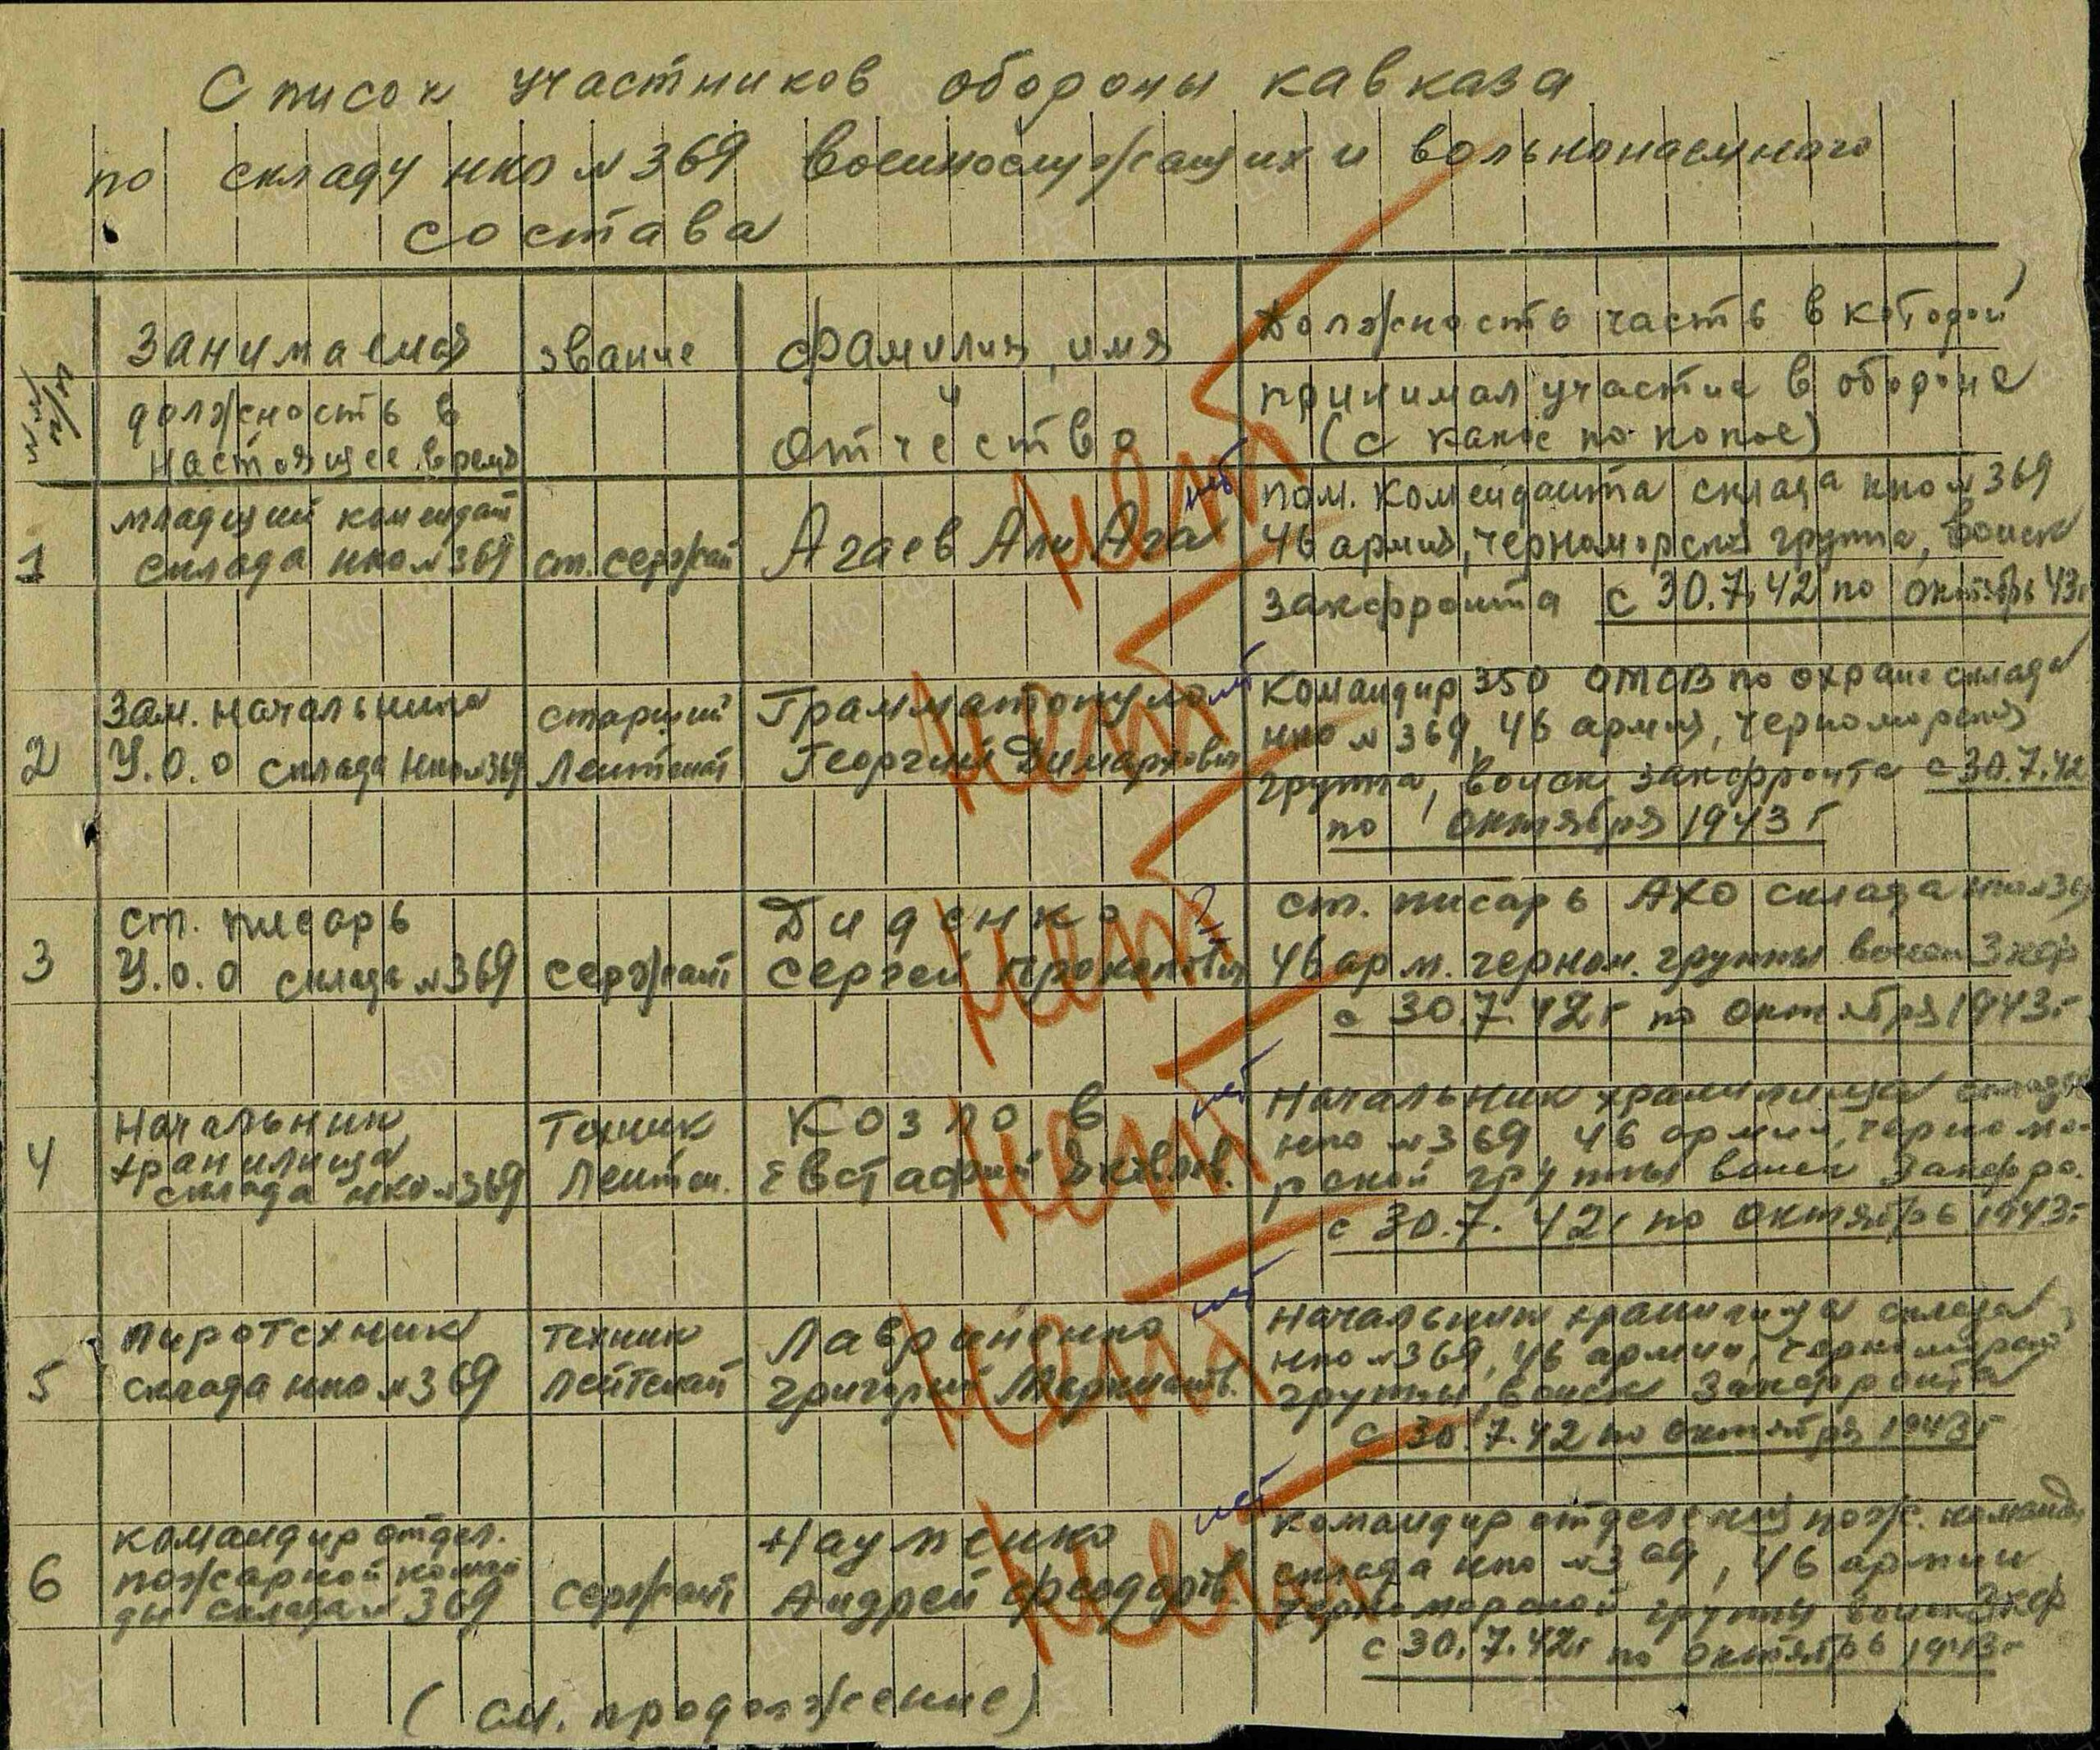 Список участников обороны кавказа
по складу нко №369 военнослужащих и вольнонаемного
состава
№/№ п/п
Занимаемая
должность в
настоящее время
звание
фамилия, имя
и
отчество
Должность часть в которой
принимал участие в обороне
(с какое по какое)
1
младший комендант
склада нко №369
ст. сержант
Агаев Али Ага
нет
пом. коменданта склада нко №369
46 армия, черноморская группа, войск
закфронта с 30.7.42 по октябрь 43г
2
Зам. начальника
У.О.О склада нко №369
старший
лейтенант
Грамматопуло
Георгий Димархович
нет
Командир 350 ОМСВ по охране склада
нко №369, 46 армия, черноморская
группа, войск закфронта с 30.7.42
по октября 1943 г
3
ст. писарь
У.О.О склада №369
сержант
Диденко
Сергей Прокопьевич
?
ст. писарь АХО склада нко №369
46 арм. черном. группы войск Зкф
с 30.7.42г по октября 1943г
4
Начальник
хранилища
склада нко №369
Техник
Лейтен.
Козлов
Евстафий Яковлев.
нет
Начальник хранилища склада
нко №369 46 армии, черномо-
рской группы войск Закфро.
с 30.7.42г по октябрь 1943г
5
пиротехник
склада нко №369
техник
лейтенант
Лавриненко
Григорий
нет
Начальник хранилища склада
нко №369, 46 армии, черноморской
группы, войск Закфронта
с 30.7.42 по октября 1943г
6
командир отдел.
пожарной коман
ды склада № 369
сержант
Науменко
Андрей Феодоров.
нет
командир отделения пож. команды
склада нко №369, 46 армии
черноморской группы войск Зкф
с 30.7.42г по октябрь 1943г
нет
нет
нет
нет
нет
нет
(см. продолжение)